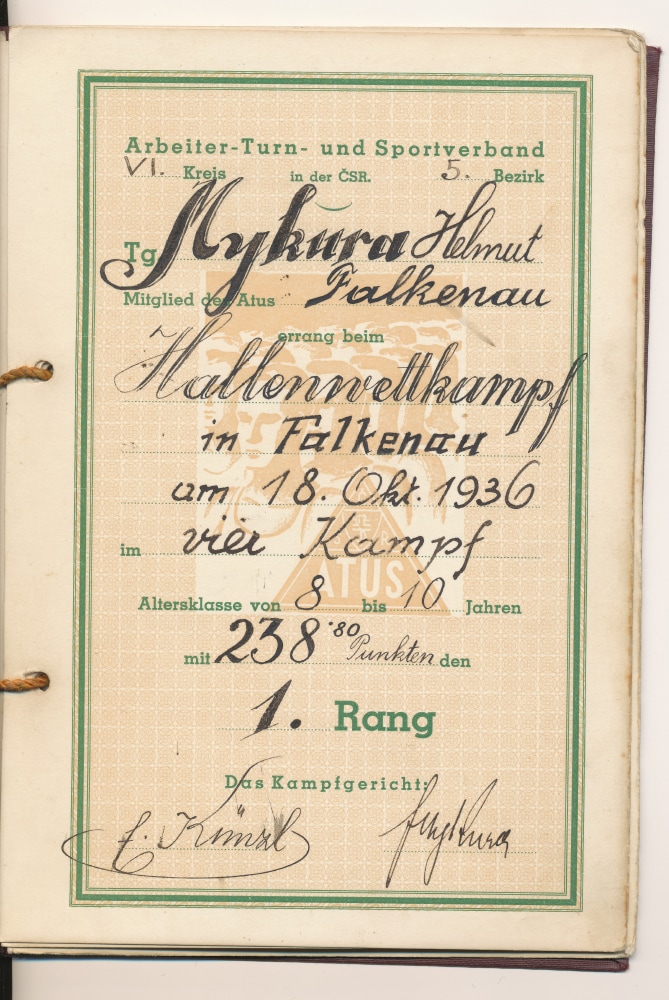 Arbeiter-Turn- und Sportverband
VI. Kreis in der ČSR. 5. Bezirk
Tg. Mykura Helmut
Mitglied des Atus Falkenau
errang beim
Hallenwettkampf
in Falkenau
am 18. Okt. 1936
im vier Kampf
ATUS
Altersklasse von 8 bis 10 Jahren
mit 238·80 Punkten den
1. Rang
Das Kampfgericht:
E. Künzl